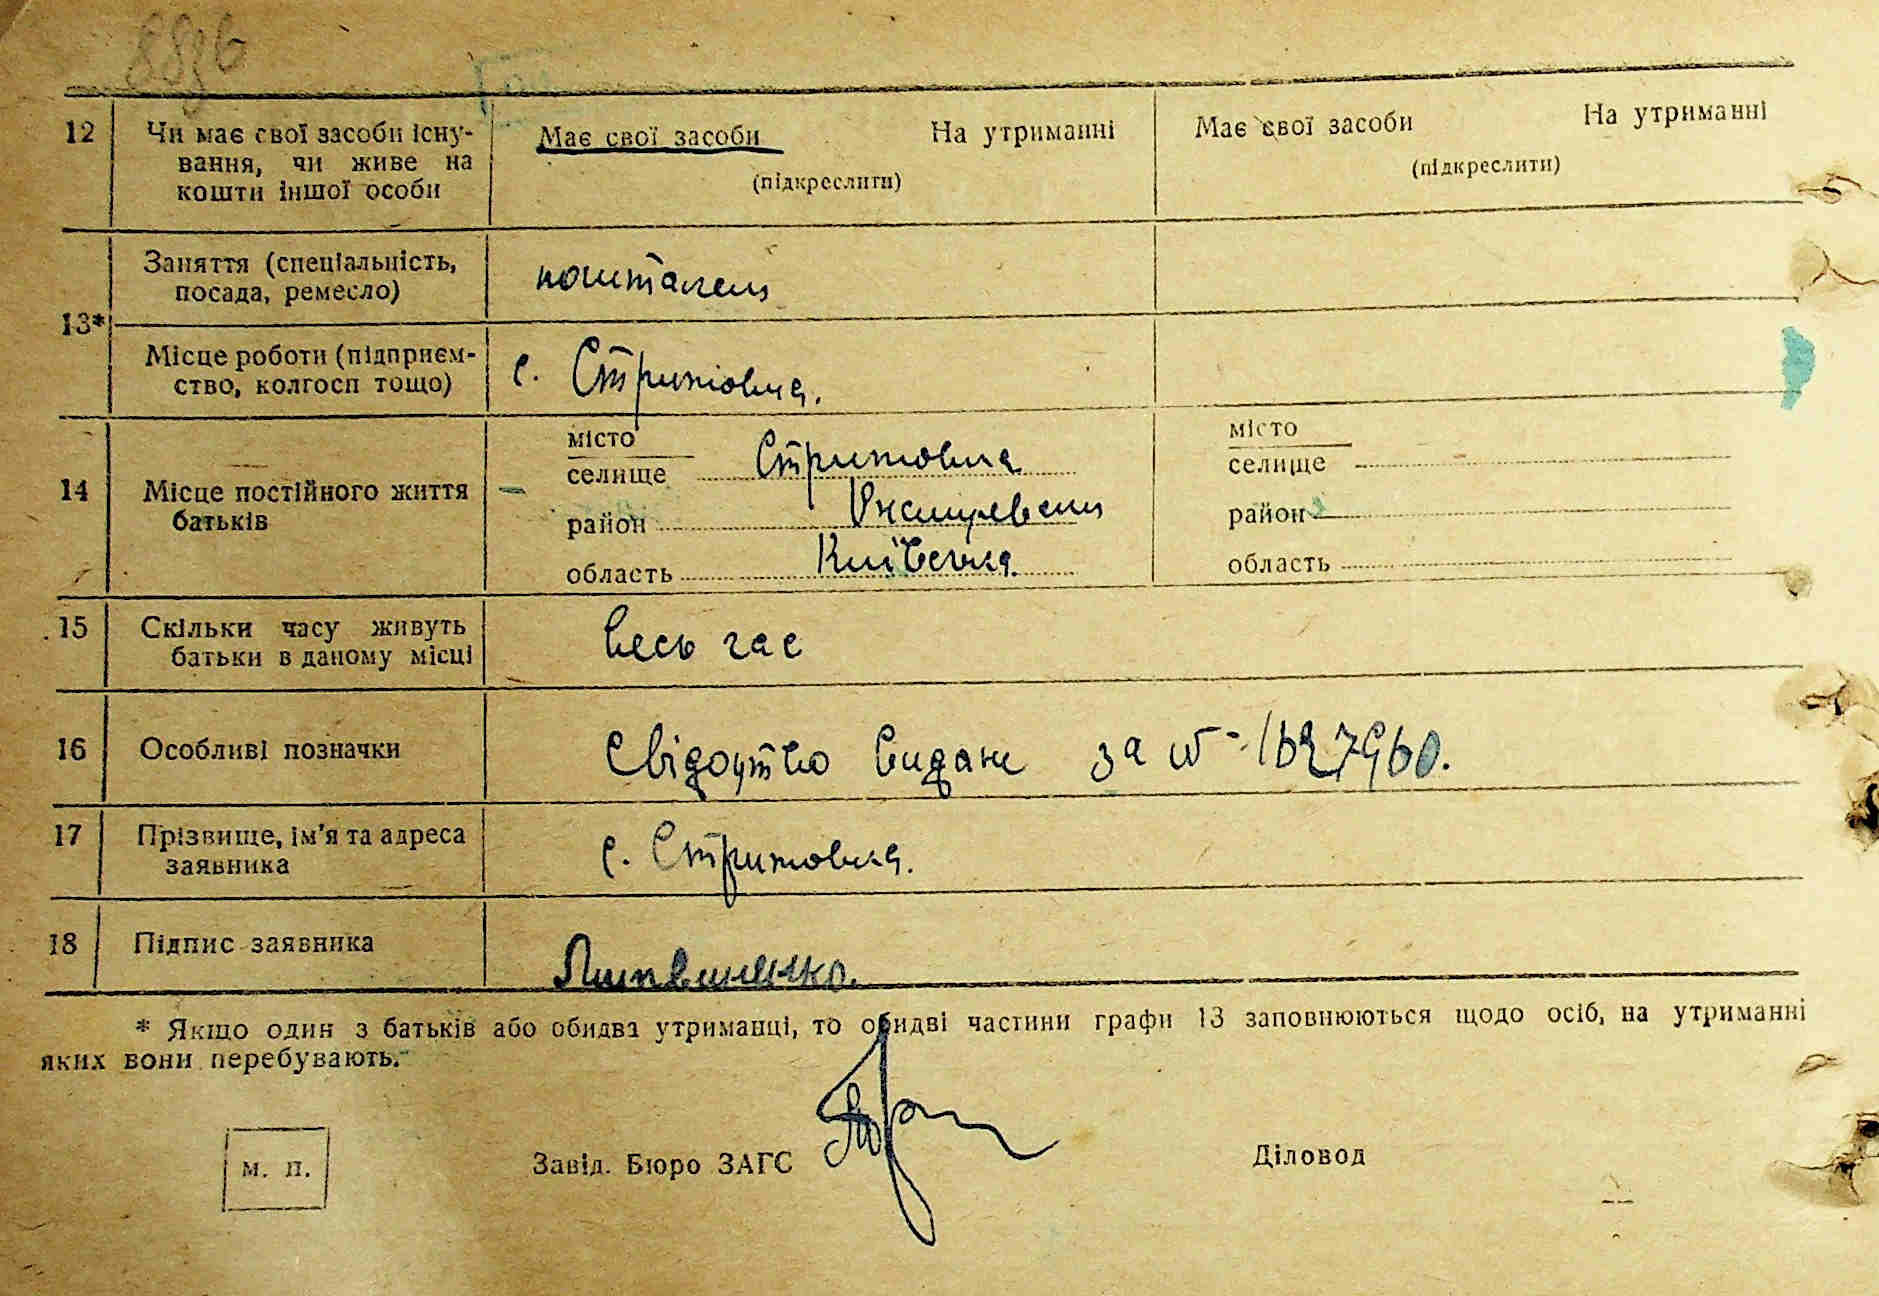 12 Чи має свої засоби існу- Має свої засоби На утриманні Має свої засоби На утриманні
вання, чи живе на (підкреслити) (підкреслити)
кошти іншої особи
13* Заняття (спеціальність,
посада, ремесло)
Місце роботи (підприєм- с.
ство, колгосп тощо)
14 Місце постійного життя
батьків
місто місто
селище селище
район район
область Київська область
15 Скільки часу живуть весь час
батьки в даному місці
16 Особливі позначки Свідоцтво видане за №
17 Прізвище, ім'я та адреса с.
заявника
18 Підпис заявника Литвиненко.
* Якщо один з батьків або обидва утриманці, то обидві частини графи 13 заповнюються щодо осіб, на утриманні
яких вони перебувають.
м. п. Завід. Бюро ЗАГС Діловод